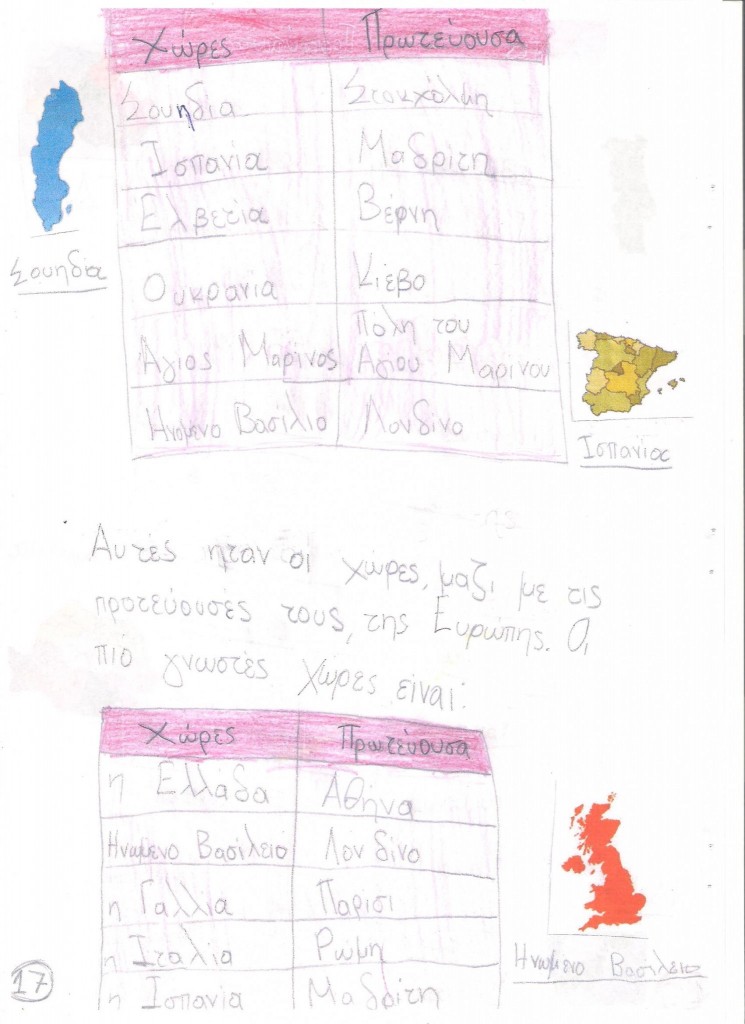 Χώρες Πρωτεύουσα
Σουηδία Στοκχόλμη
Ισπανία Μαδρίτη
Ελβετία Βέρνη
Ουκρανία Κίεβο
Άγιος Μαρίνος Πόλη του Αγίου Μαρίνου
Ηνομενο Βασίλιο Λονδίνο
Σουηδία
Ισπανία
Αυτές ηταν οι χώρες, μαζι με τις
προτεύουσές τους, της Ευρώπης. Οι
πιό γνωστές χώρες είναι:
Χώρες Πρωτεύουσα
η Ελλάδα Αθήνα
Ηνωμενο Βασίλειο Λονδίνο
η Γαλλία Παρισι
η Ιταλία Ρώμη
η Ισπανία Μαδρίτη
Ηνωμενο Βασίλειο
17